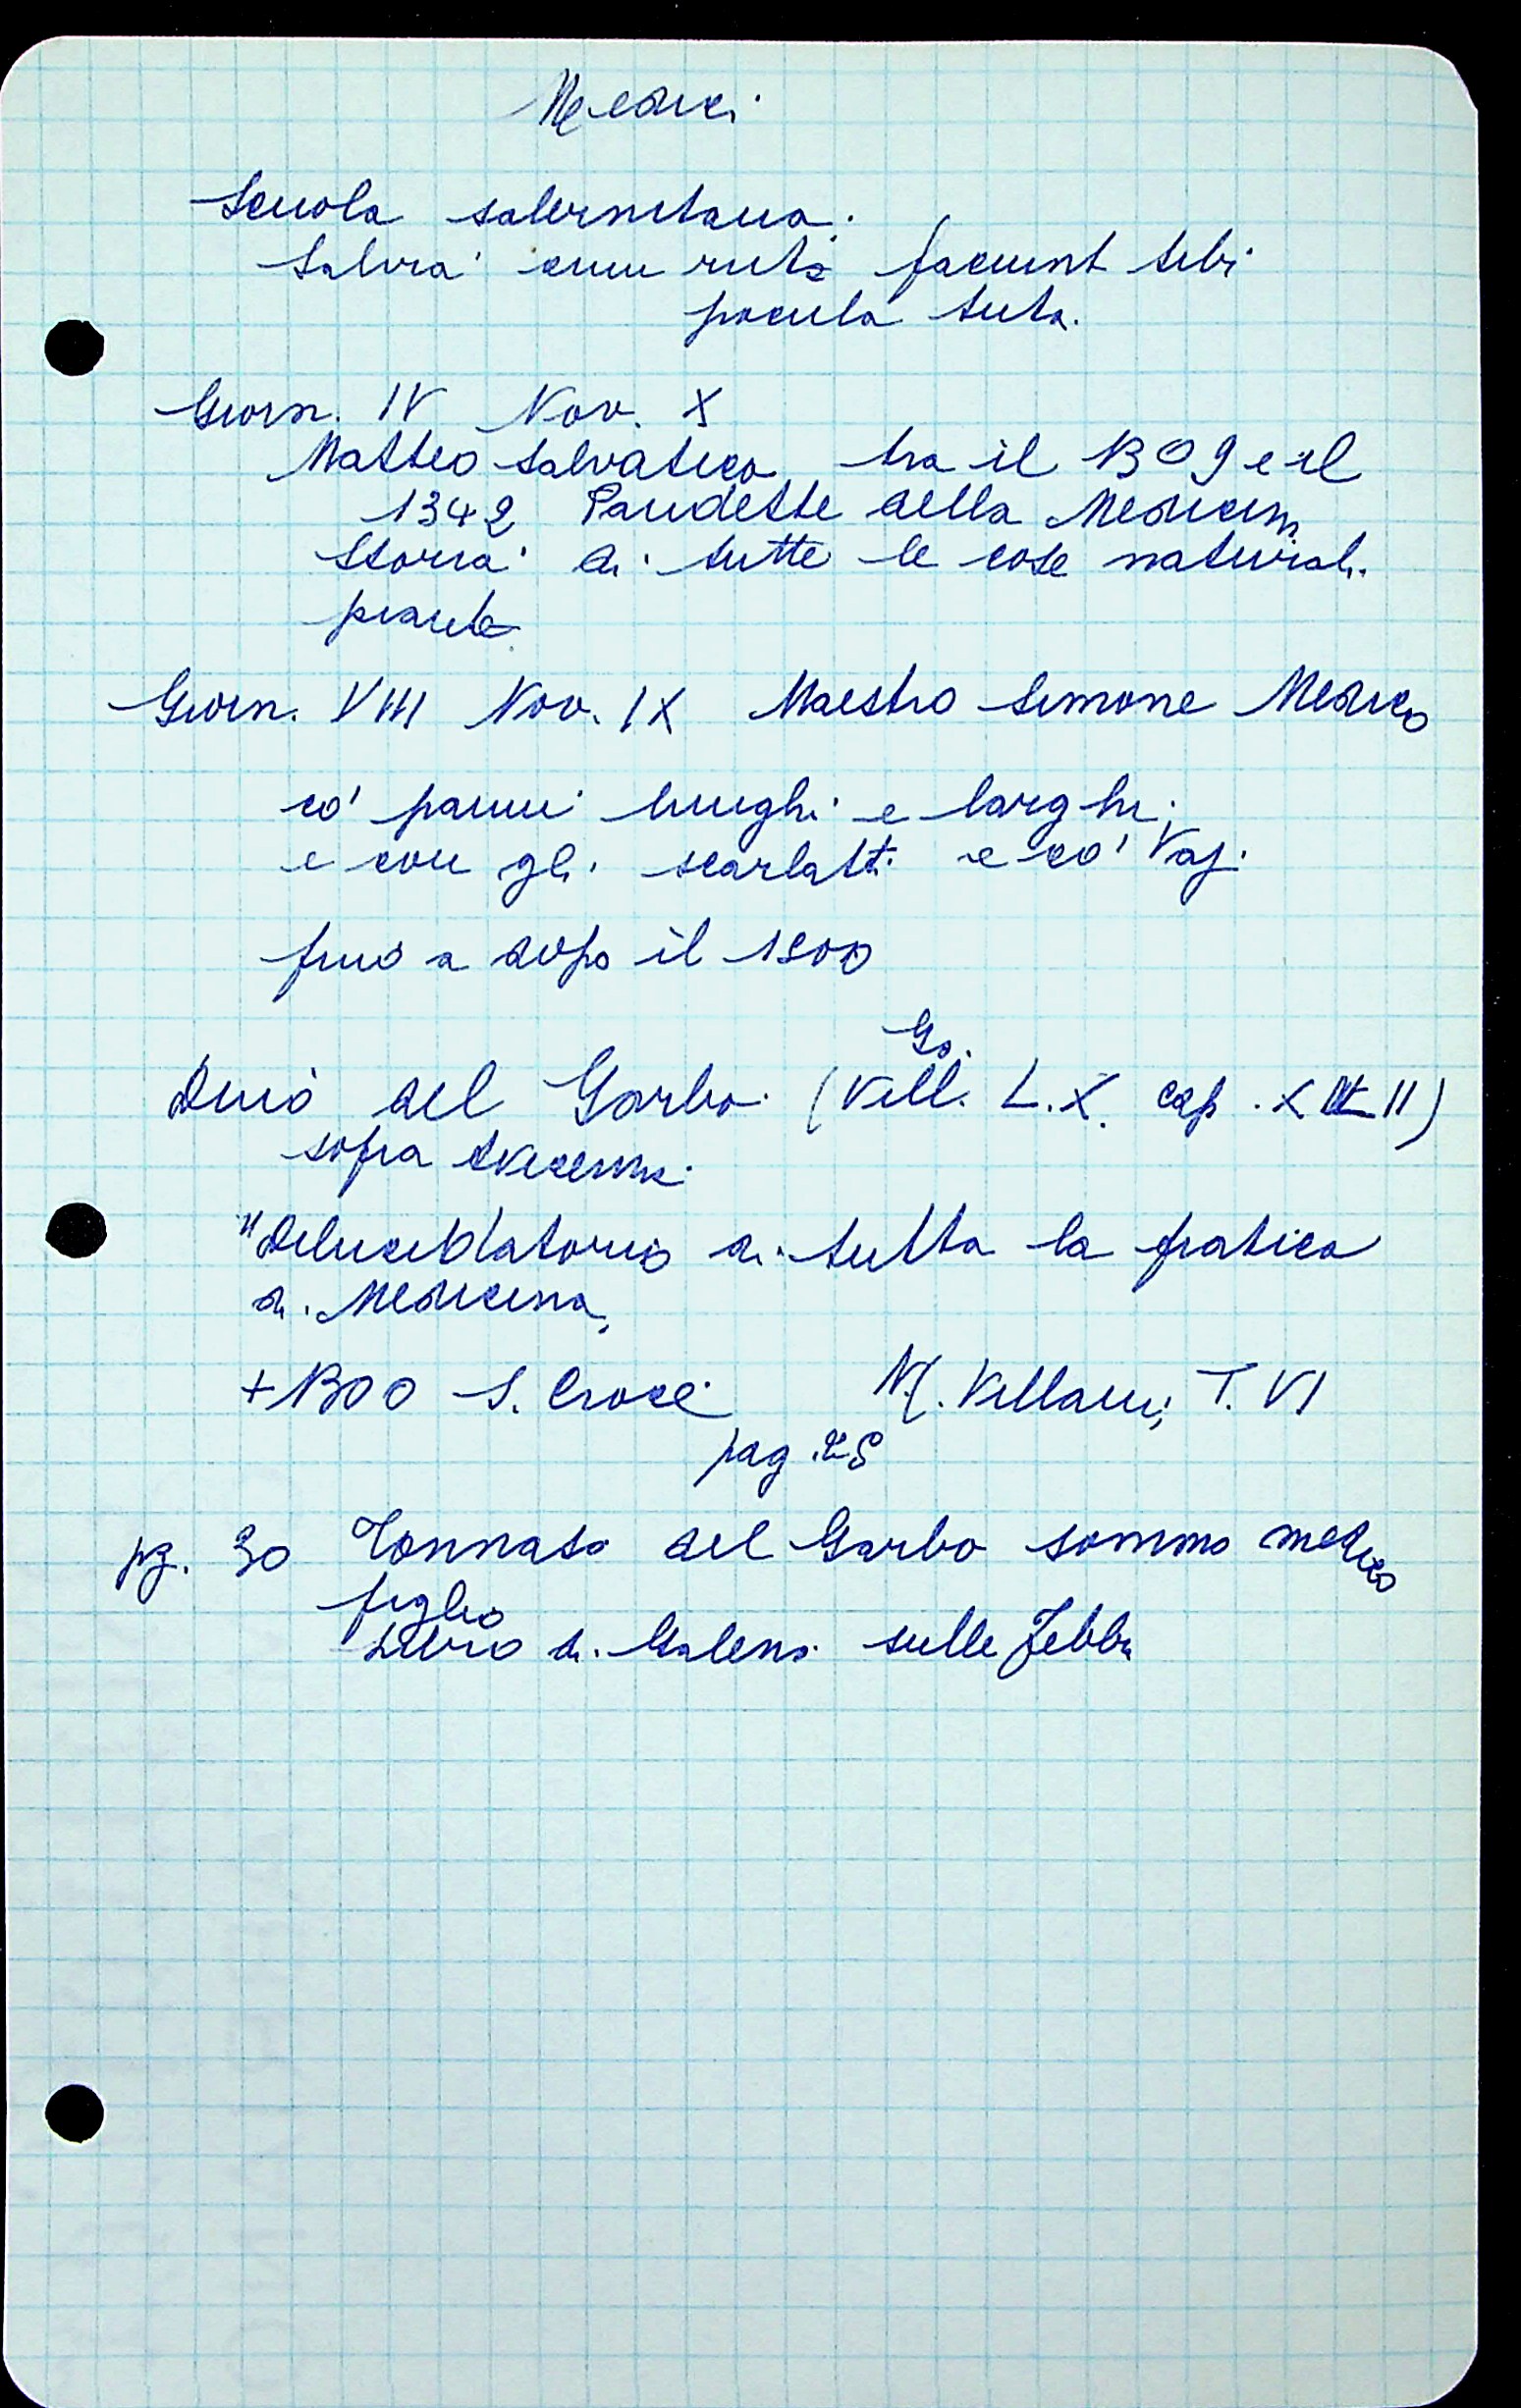 Medici
Scuola salernitana:
Salvia cum ruta faciunt tibi
pocula tuta.
Giorn. IV Nov. X
Matteo Salvatico tra il 1309 e il
1342 Pandette della Medicina
Storia di tutte le cose naturali.
piante
Giorn. VIII Nov. IX Maestro Simone Medico
co' panni lunghi e larghi
e con gli scarlatti e co' Vaj.
fino a dopo il 1800
Gio.
Dino del Garbo (Vill. L. X. cap. XLII)
sopra Avicenna
"Delucidatorio di tutta la pratica
di Medicina,
+ 1300 S. Croce M. Villani, T. VI
pag. 28
pg. 30 Tommaso del Garbo sommo medico
figlio
Libro di Galeno sulle Febbri